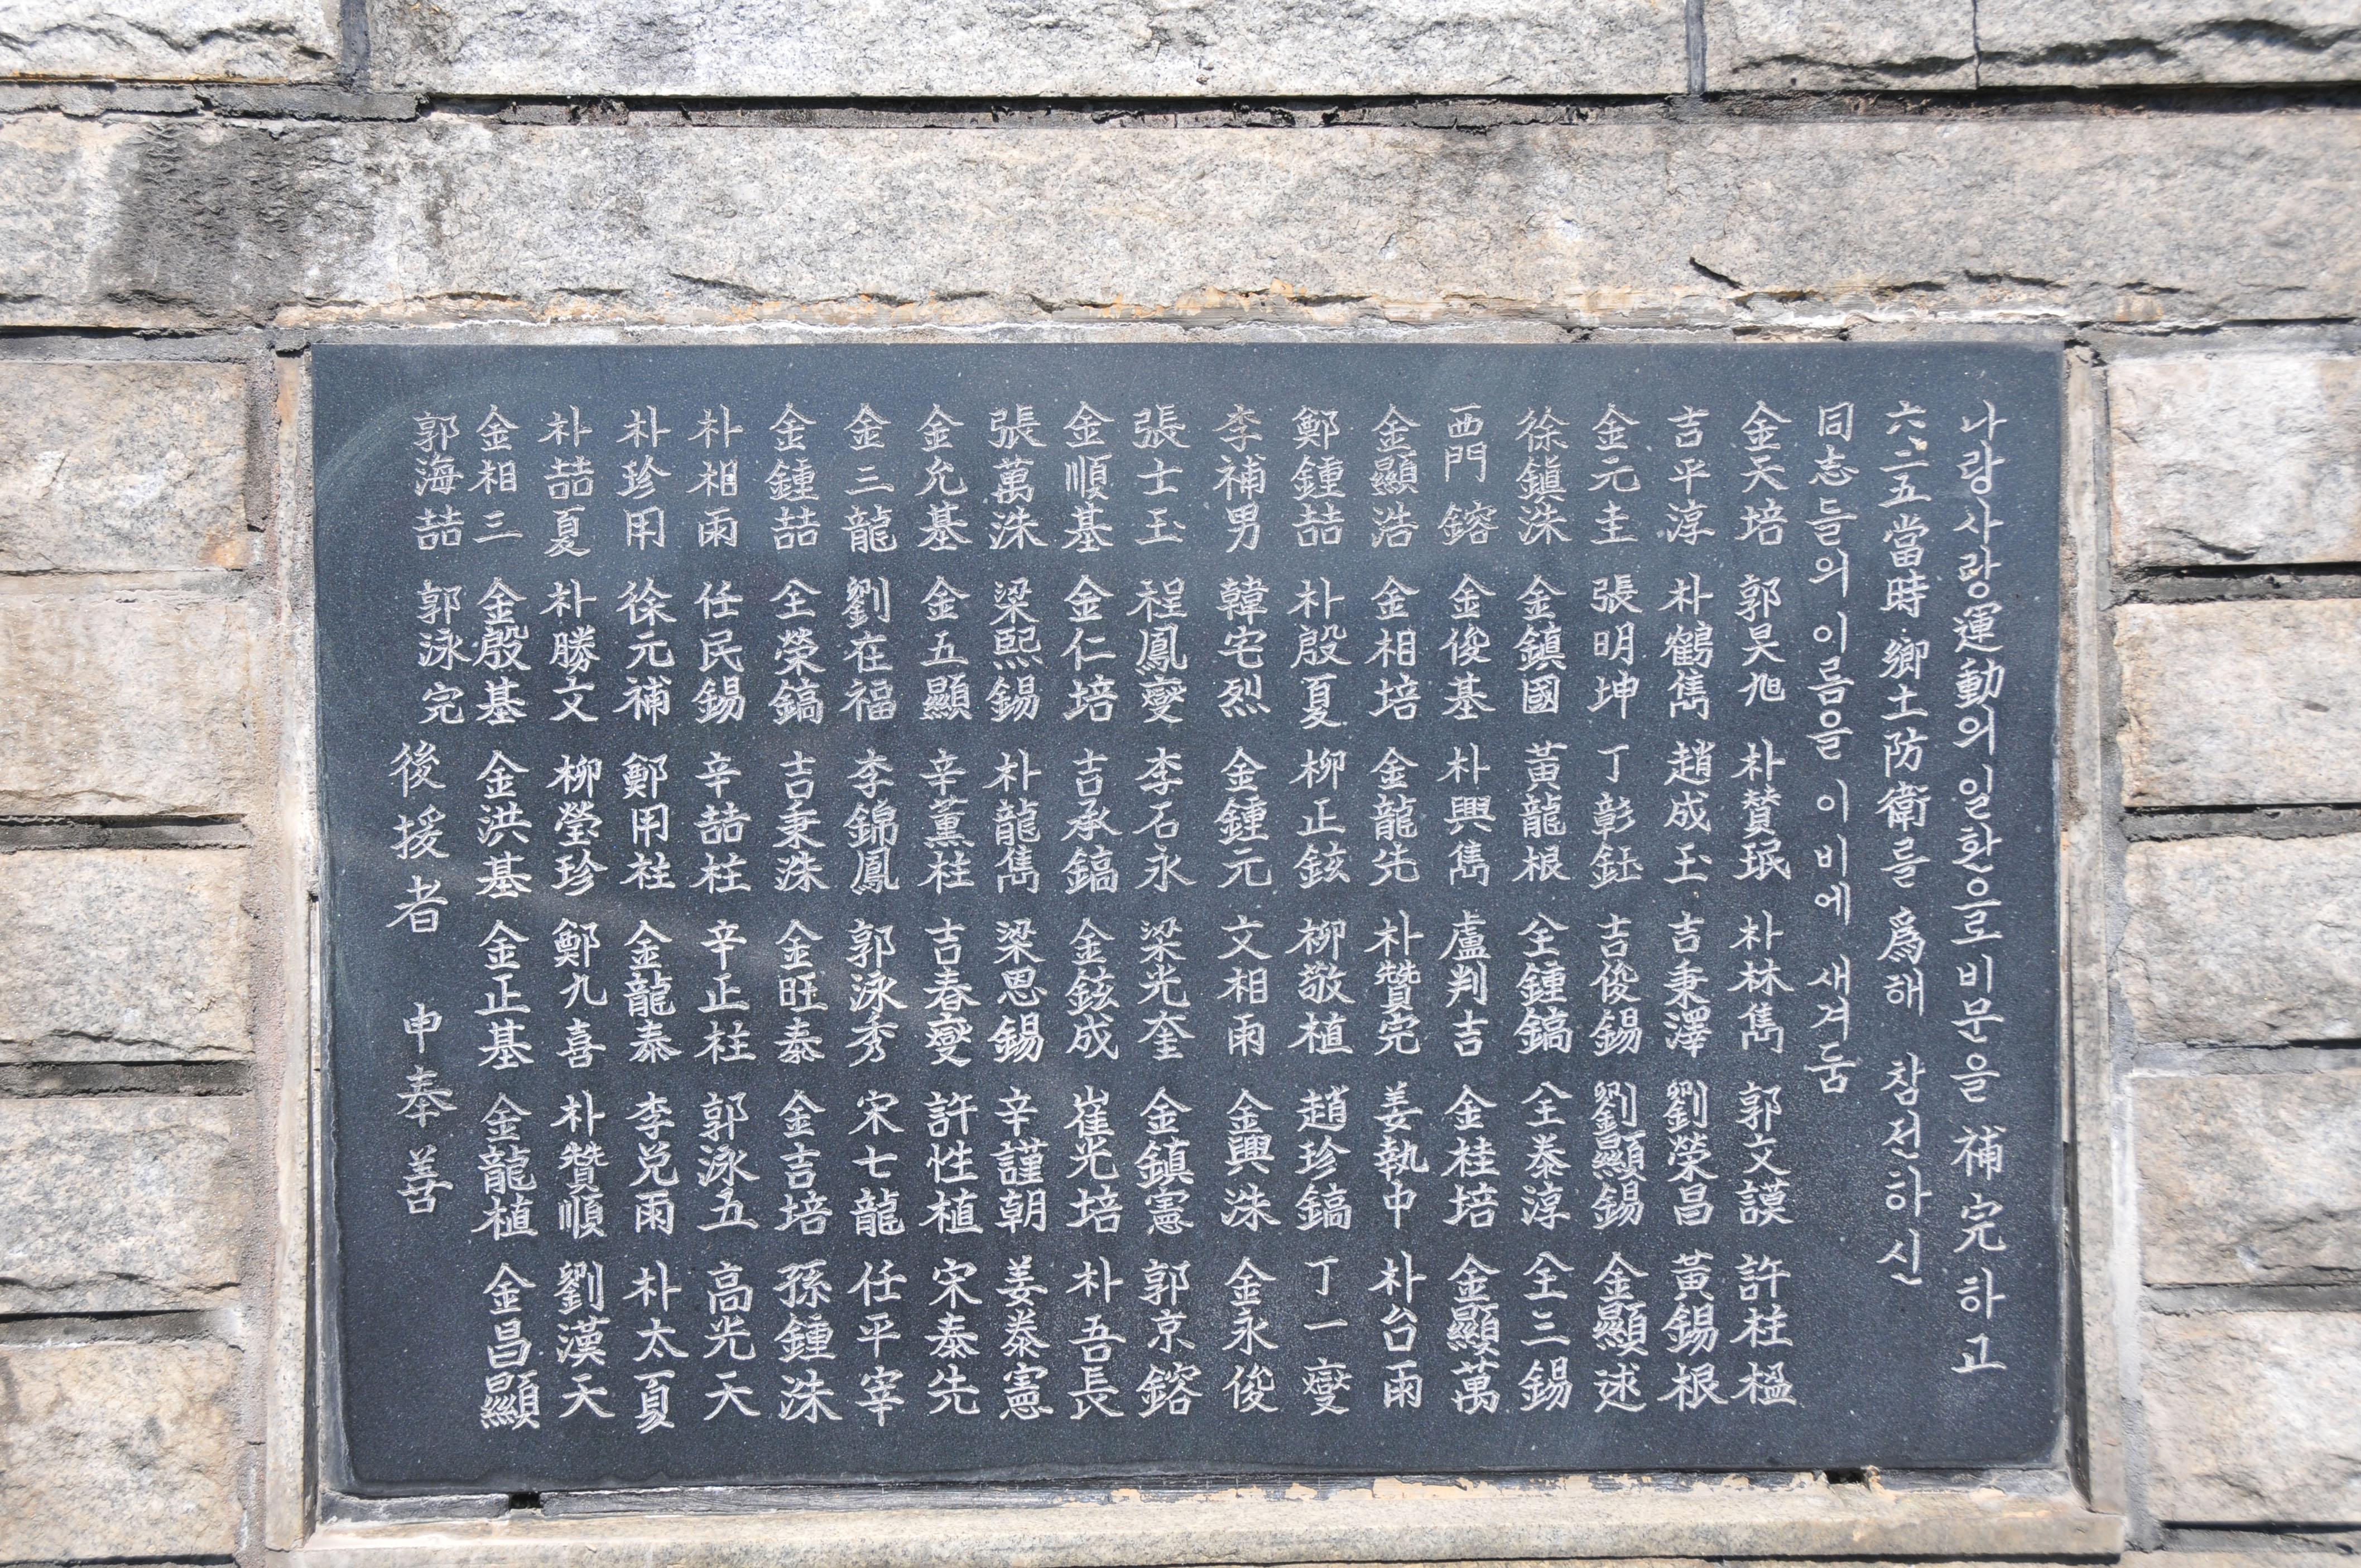 나랑사랑運動의 일환으로 비문을 補完하고
六·二五 當時 鄕土防衛를 爲해 참전하신
同志들의 이름을 이비에 새겨둠
金天培 郭昊旭 朴賛珉 朴林雋 郭文謨 許柱楹
吉平淳 朴鶴雋 趙成玉 吉秉澤 劉榮昌 黃錫根
金元圭 張明坤 丁彰鈺 吉俊錫 劉顯錫 金顯述
徐鎭洙 金鎮國 黃龍根 全鍾鎬 全泰淳 全三錫
西門鎔 金俊基 朴興雋 盧判吉 金桂培 金顯萬
金顯浩 金相培 金龍先 朴贊完 姜執中 朴台雨
鄭鍾喆 朴殷夏 柳正鉉 柳敬植 趙珍鎬 丁一燮
李補男 韓宅烈 金鍾元 文相雨 金興洙 金永俊
張士玉 程鳳燮 李石永 梁光奎 金鎮憲 郭京鎔
金順基 金仁培 吉承鎬 金鉉成 崔光培 朴吾長
張萬洙 梁熙錫 朴龍雋 梁思錫 辛謹朝 姜泰憲
金允基 金五顯 辛薰柱 吉春燮 許性植 宋泰先
金三龍 劉在福 李錦鳳 郭泳秀 宋七龍 任平宰
金鍾喆 全榮鎬 吉秉洙 金旺泰 金吉培 孫鍾洙
朴相雨 任民錫 辛喆柱 辛正柱 郭泳五 高光天
朴珍用 徐元補 鄭用柱 金龍泰 李兌雨 朴太夏
朴喆夏 朴勝文 柳瑩珍 鄭九喜 朴贊順 劉漢天
金相三 金殷基 金洪基 金正基 金龍植 金昌顯
郭海喆 郭泳完
後援者 申奉善